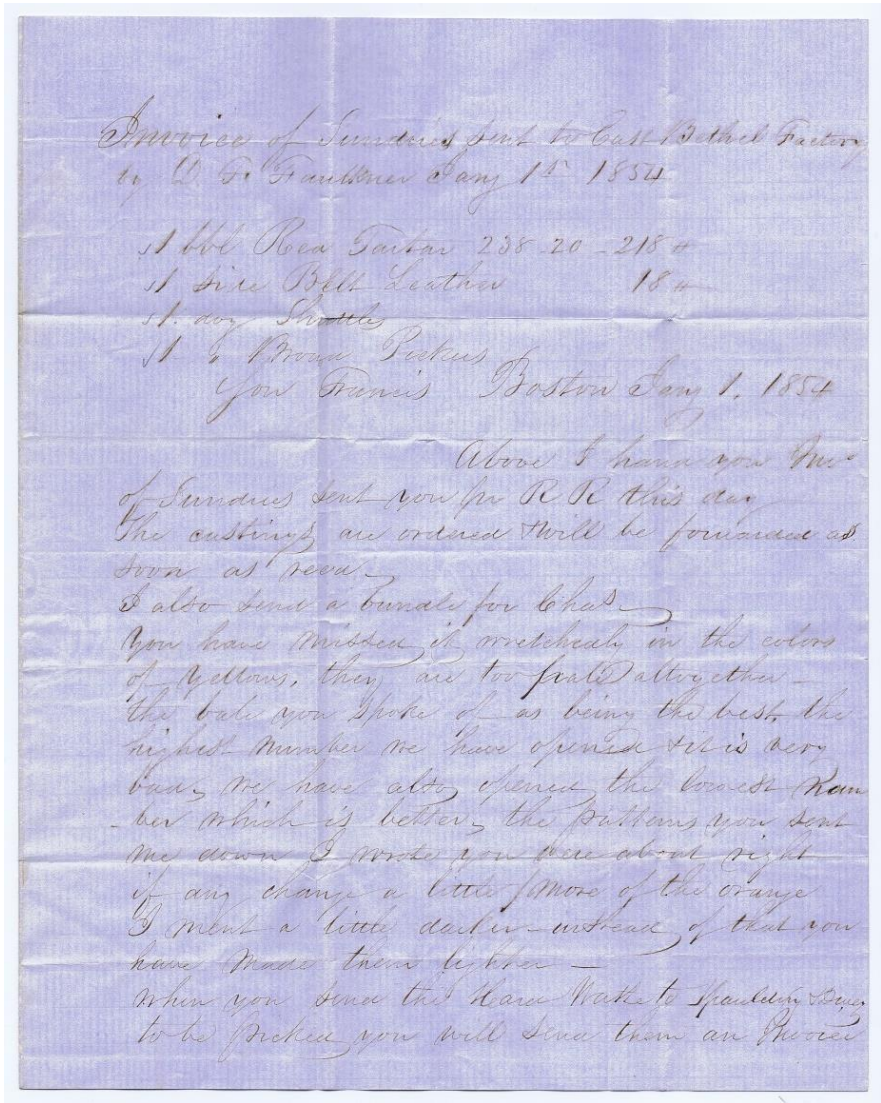 Invoice of Sundries sent to East Bethel Factory
by D. F. Faulkner Jany 1st 1854
1 bbl Red Tartar 238-20-218 #
1 side Belt Leather 18 #
1 doz Shuttles
1 " Broad Pickers
Son Francis Boston Jany 1, 1854
Above I hand you Invo
of Sundries sent you pr R R this day
The castings are ordered & will be forwarded as
soon as recd-
I also send a bundle for Chas-
You have missed it wretchedly in the colors
of yellows, they are too pale altogether-
the bale you spoke of as being the best, the
highest number we have opened & it is very
bad, we have also opened the lowest Num
-ber which is better, the patterns you sent
me down I wrote you were about right
if any change a little more of the orange
I ment a little darker- instead of that you
have made them lighter-
when you send the Hard Waste to
to be picked you will send them an Invoice